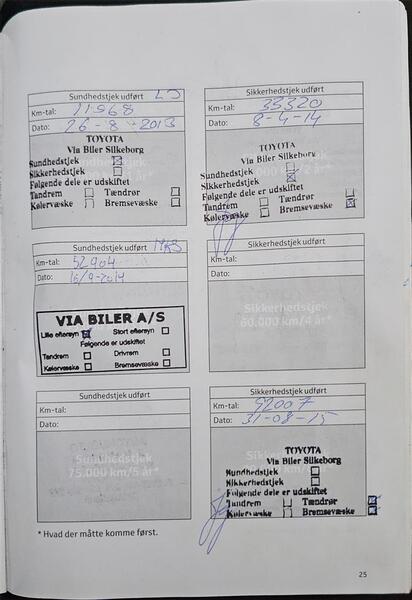 Sundhedstjek udført
Km-tal: 11568
Dato: 26-8-2013
TOYOTA
Via Biler Silkeborg
Sundhedstjek
Sikkerhedstjek
Følgende dele er udskiftet
Tandrem Tændrør
Kølervæske Bremsevæske
Sikkerhedstjek udført
Km-tal: 33320
Dato: 8-4-14
TOYOTA
Via Biler Silkeborg
Sundhedstjek
Sikkerhedstjek
Følgende dele er udskiftet
Tandrem Tændrør
Kølervæske Bremsevæske
Sundhedstjek udført
Km-tal: 52904
Dato: 16/9-2014
VIA BILER A/S
Lille eftersyn Stort eftersyn
Følgende er udskiftet
Tandrem Drivrem
Kølervæske Bremsevæske
Sikkerhedstjek udført
Km-tal:
Dato:
Sikkerhedstjek
60.000 km/4 år*
Sundhedstjek udført
Km-tal:
Dato:
Sundhedstjek
75.000 km/5 år*
Sikkerhedstjek udført
Km-tal: 92007
Dato: 31-08-15
TOYOTA
Via Biler Silkeborg
Sundhedstjek
Sikkerhedstjek
Følgende dele er udskiftet
Tandrem Tændrør
Kølervæske Bremsevæske
* Hvad der måtte komme først.
25